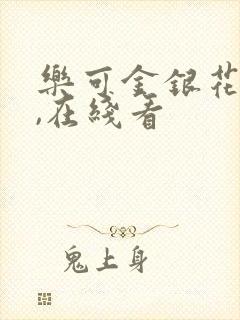 樂可金銀花
,在綫看
鬼上身